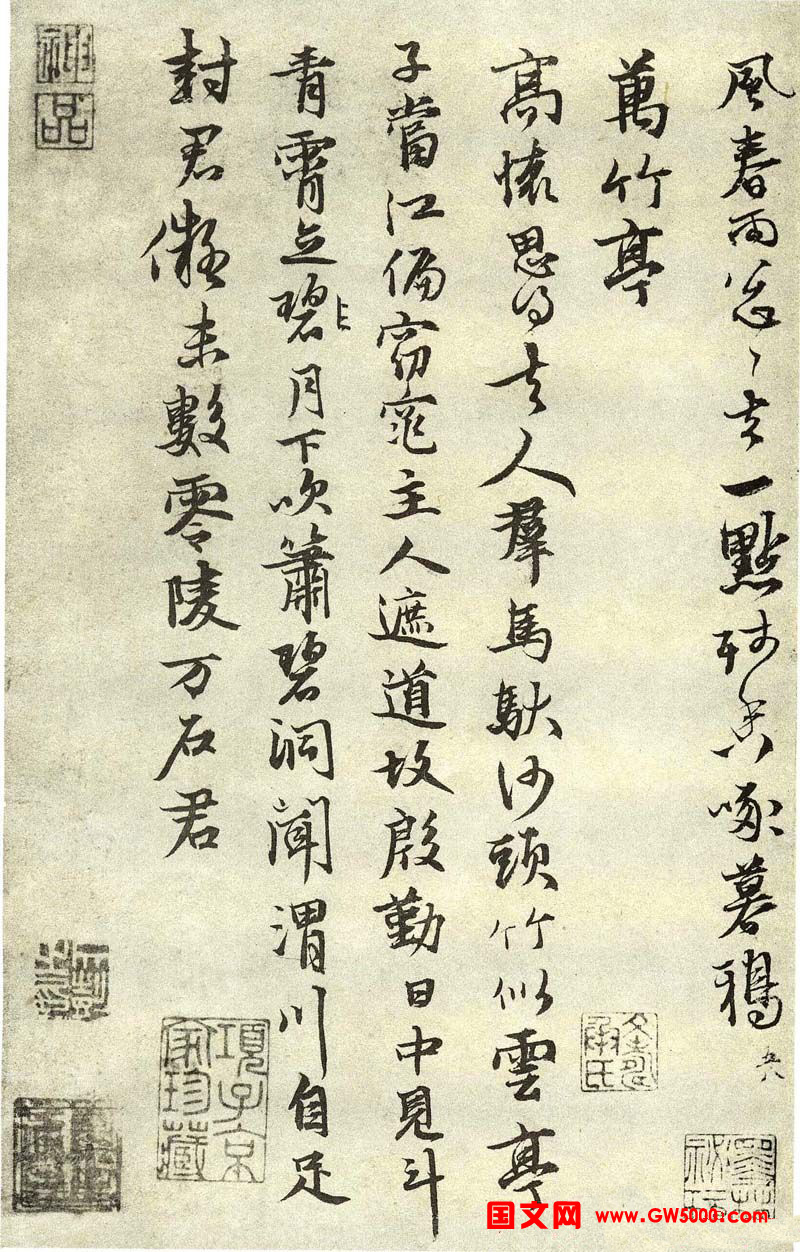 風春雨怱〻去一點殘香啄暮鴉
萬竹亭
高懷思得去人羣馬馱沙頭竹似雲亭
子當江偏窈窕主人遮道故殷勤日中見斗
青霄立碧月下吹簫碧洞聞渭川自足
封君儗未數零陵万石君
神品
項子京家珍藏
国文网 www.GW5000.com